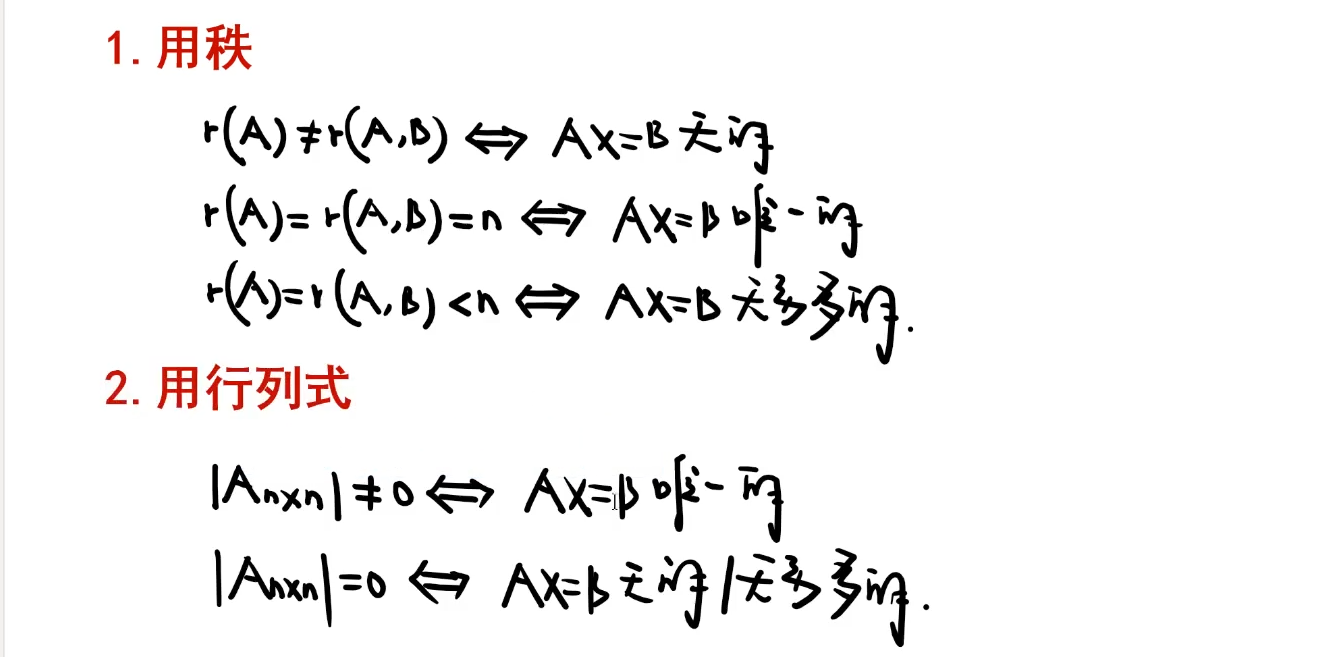 1. 用秩
r(A)≠r(A,B) ⇔ AX=B 无解
r(A)=r(A,B)=n ⇔ AX=B 唯一解
r(A)=r(A,B)<n ⇔ AX=B 无穷多解.
2. 用行列式
|Aₙₓₙ|≠0 ⇔ AX=B 唯一解
|Aₙₓₙ|=0 ⇔ AX=B 无解/无穷多解.